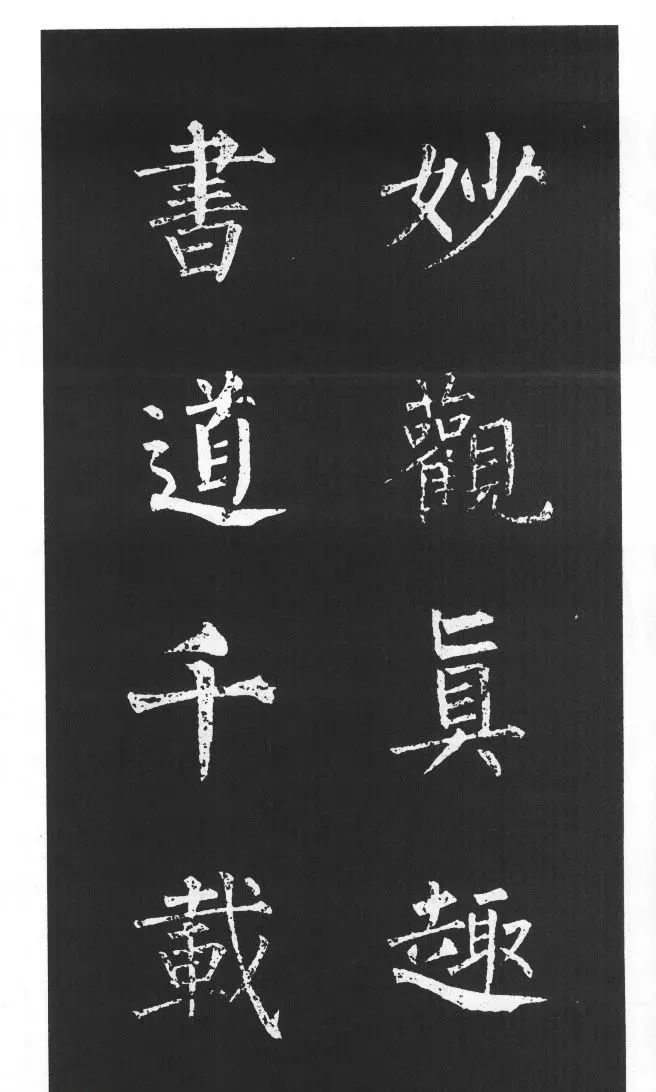 妙觀真趣
書道千載